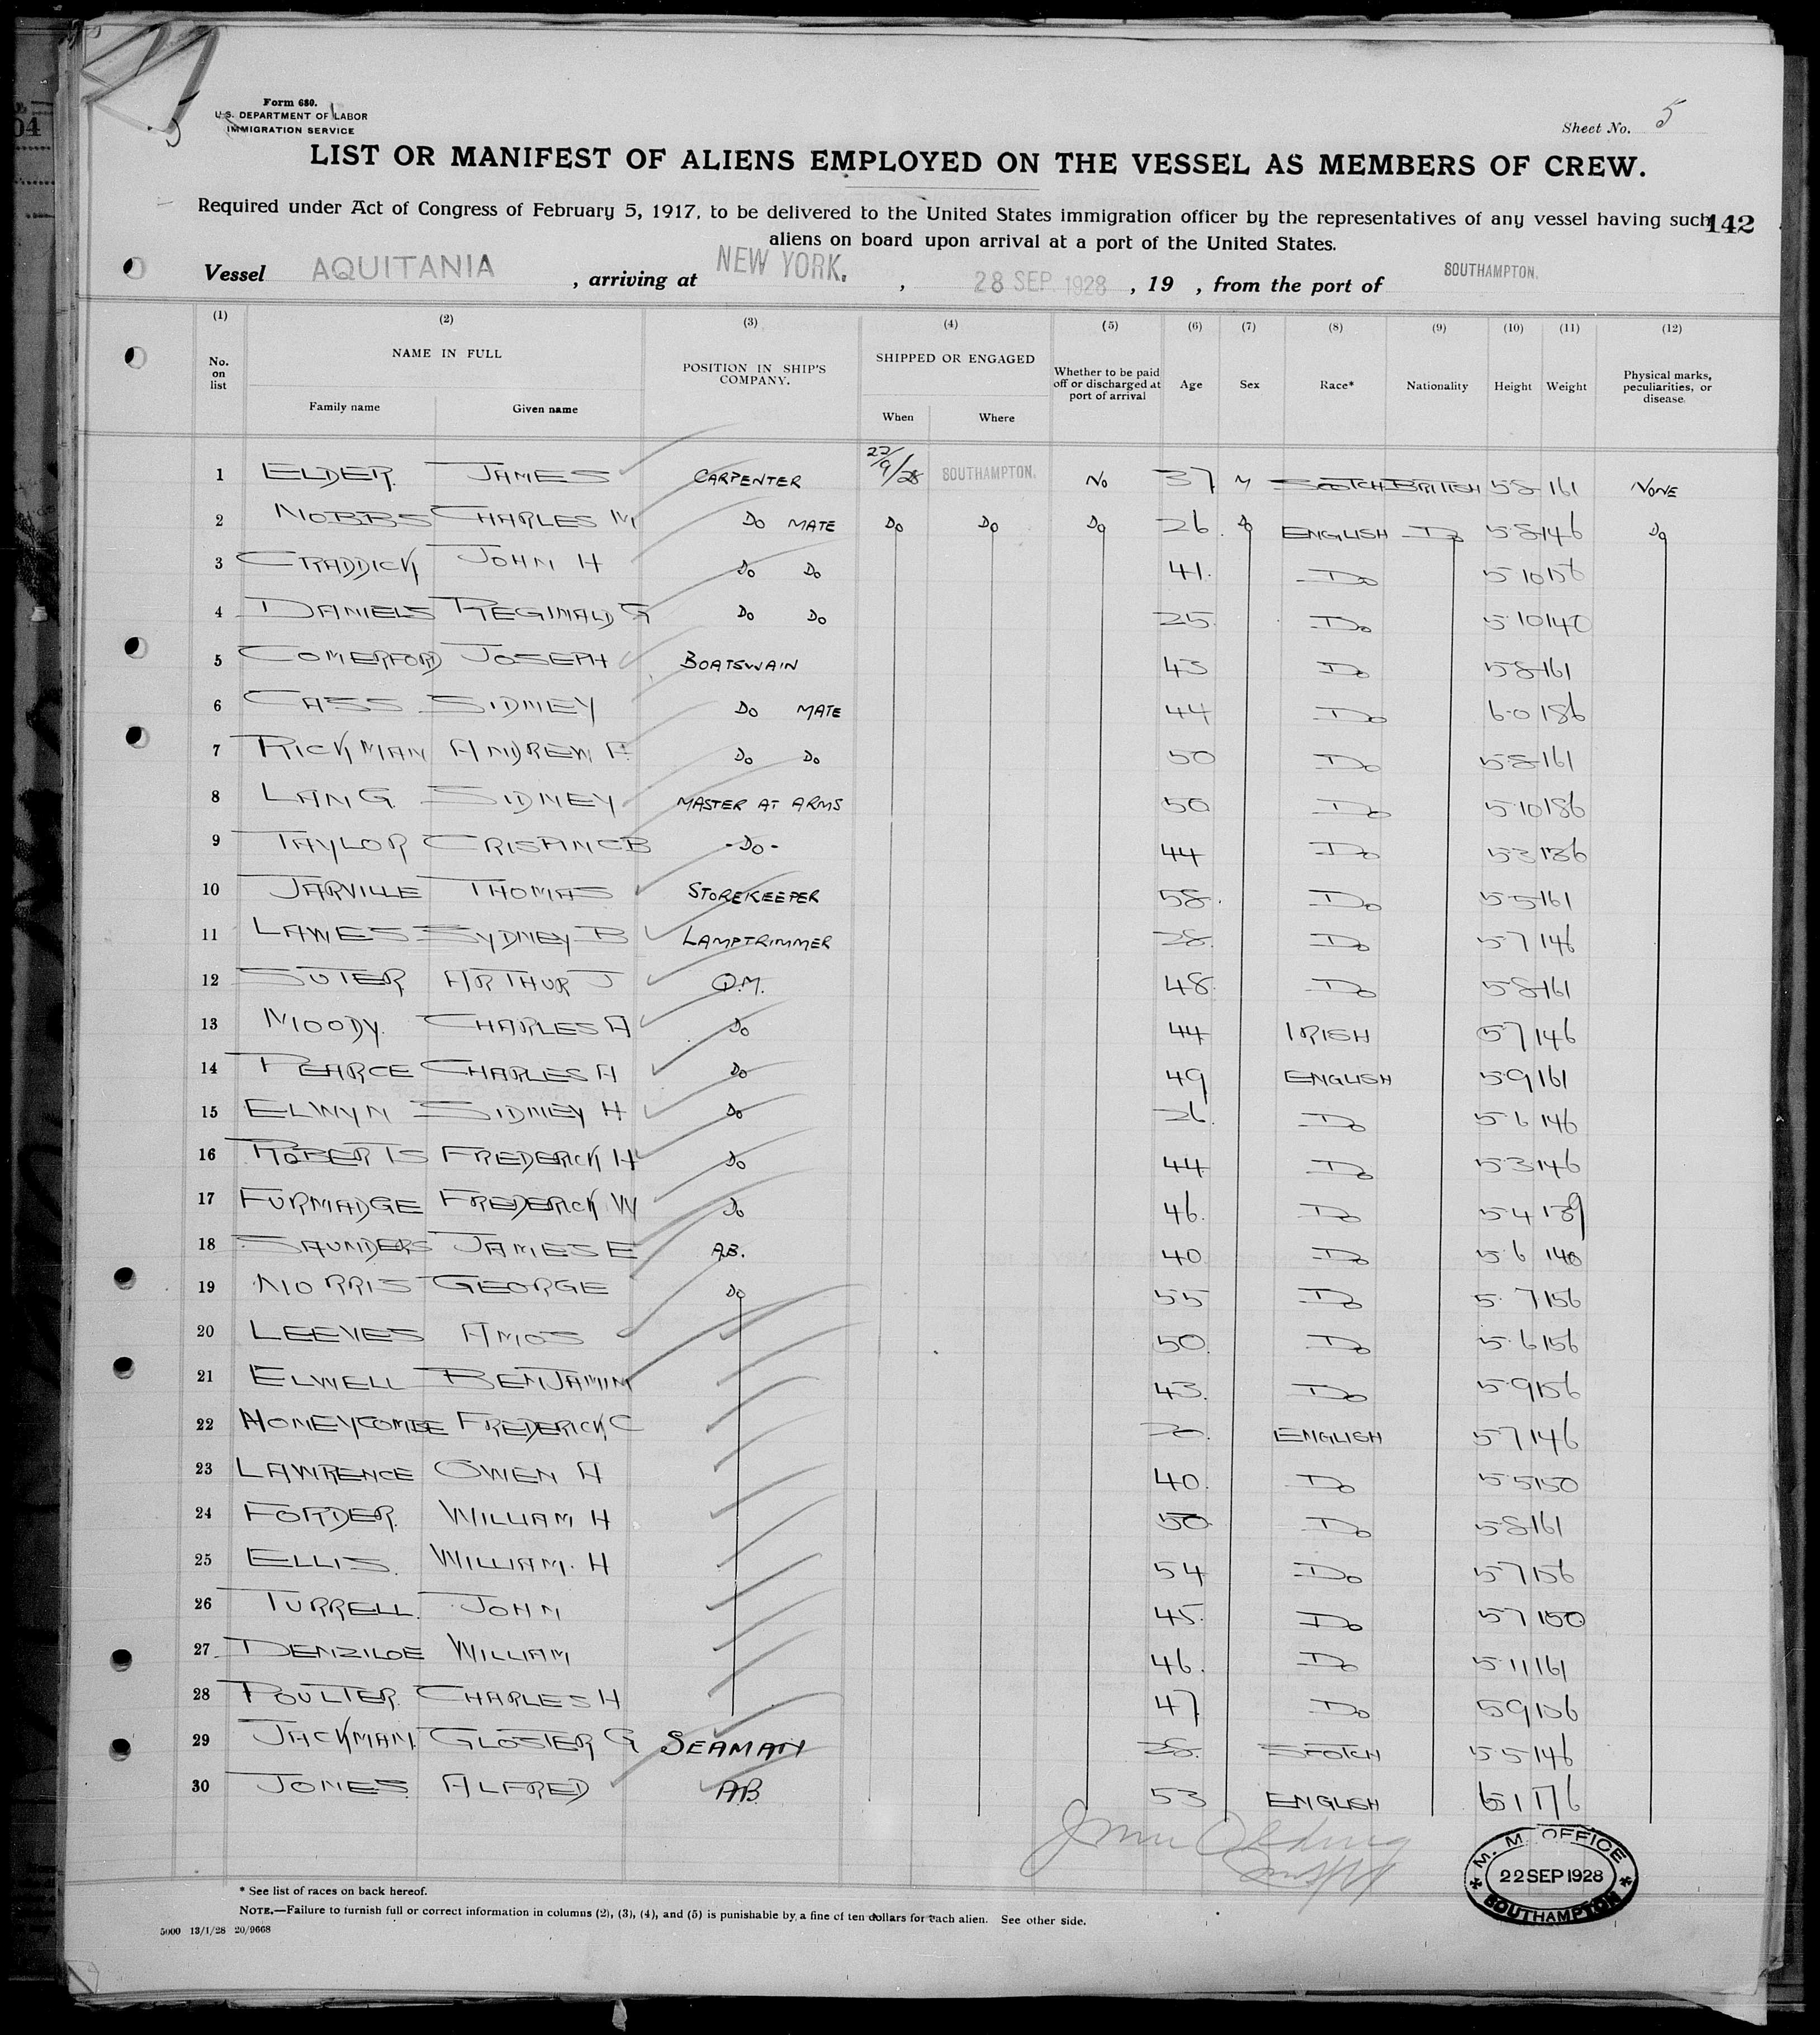 04
Form 680.
U.S. DEPARTMENT OF LABOR
IMMIGRATION SERVICE
Sheet No. 5
LIST OR MANIFEST OF ALIENS EMPLOYED ON THE VESSEL AS MEMBERS OF CREW.
Required under Act of Congress of February 5, 1917, to be delivered to the United States immigration officer by the representatives of any vessel having such
142
aliens on board upon arrival at a port of the United States.
Vessel AQUITANIA , arriving at NEW YORK. , 28 SEP. 1928 , 19 , from the port of SOUTHAMPTON.
(1) (2) (3) (4) (5) (6) (7) (8) (9) (10) (11) (12)
No. on list NAME IN FULL POSITION IN SHIP'S COMPANY. SHIPPED OR ENGAGED Whether to be paid off or discharged at port of arrival Age Sex Race* Nationality Height Weight Physical marks, peculiarities, or disease
Family name Given name When Where
1 ELDER JAMES CARPENTER 22/9/28 SOUTHAMPTON. No 37 M SCOTCH BRITISH 5 8 161 NONE
2 NOBBS CHARLES M Do MATE Do Do Do 26. Do ENGLISH Do 5 8 146 Do
3 CRADDICK JOHN H Do Do 41. Do 5 10 156
4 DANIELS REGINALD G Do Do 25. Do 5 10 140
5 COMERFORD JOSEPH BOATSWAIN 43 Do 5 8 161
6 CASS SIDNEY Do MATE 44 Do 6 0 186
7 RICKMAN ANDREW A. Do Do 50 Do 5 8 161
8 LANG SIDNEY MASTER AT ARMS 50 Do 5 10 186
9 TAYLOR CRISPIN C B -Do- 44 Do 5 3 136
10 JARVILLE THOMAS STOREKEEPER 58. Do 5 5 161
11 LAWES SYDNEY B LAMPTRIMMER 28. Do 5 7 146
12 SUTER ARTHUR J Q.M. 48. Do 5 8 161
13 MOODY. CHARLES A Do 44 IRISH 5 7 146
14 PEARCE CHARLES A Do 49 ENGLISH 5 9 161
15 ELWYN SIDNEY H Do 26. Do 5 6 146
16 ROBERTS FREDERICK H Do 44 Do 5 3 146
17 FURMADGE FREDERICK W Do 46. Do 5 4 139
18 SAUNDERS JAMES E A.B. 40. Do 5 6 140
19 NORRIS GEORGE Do 55 Do 5 7 156
20 LEEVES AMOS 50. Do 5 6 156
21 ELWELL BENJAMIN 43. Do 5 9 156
22 HONEYCOMBE FREDERICK C ENGLISH 5 7 146
23 LAWRENCE OWEN A 40. Do 5 5 150
24 FORDER. WILLIAM H 50. Do 5 8 161
25 ELLIS. WILLIAM. H 54 Do 5 7 156
26 TURRELL. JOHN 45. Do 5 7 150
27 DENZILOE WILLIAM 46. Do 5 11 161
28 POULTER. CHARLES H 47 Do 5 9 156
29 JACKMAN. GLOSTER G SEAMAN 28. SCOTCH 5 5 146
30 JONES. ALFRED A.B. 53 ENGLISH 6 1 176
M. M. OFFICE
22 SEP 1928
SOUTHAMPTON
* See list of races on back hereof.
NOTE.—Failure to furnish full or correct information in columns (2), (3), (4), and (5) is punishable by a fine of ten dollars for each alien. See other side.
5000 13/1/28 20/9668